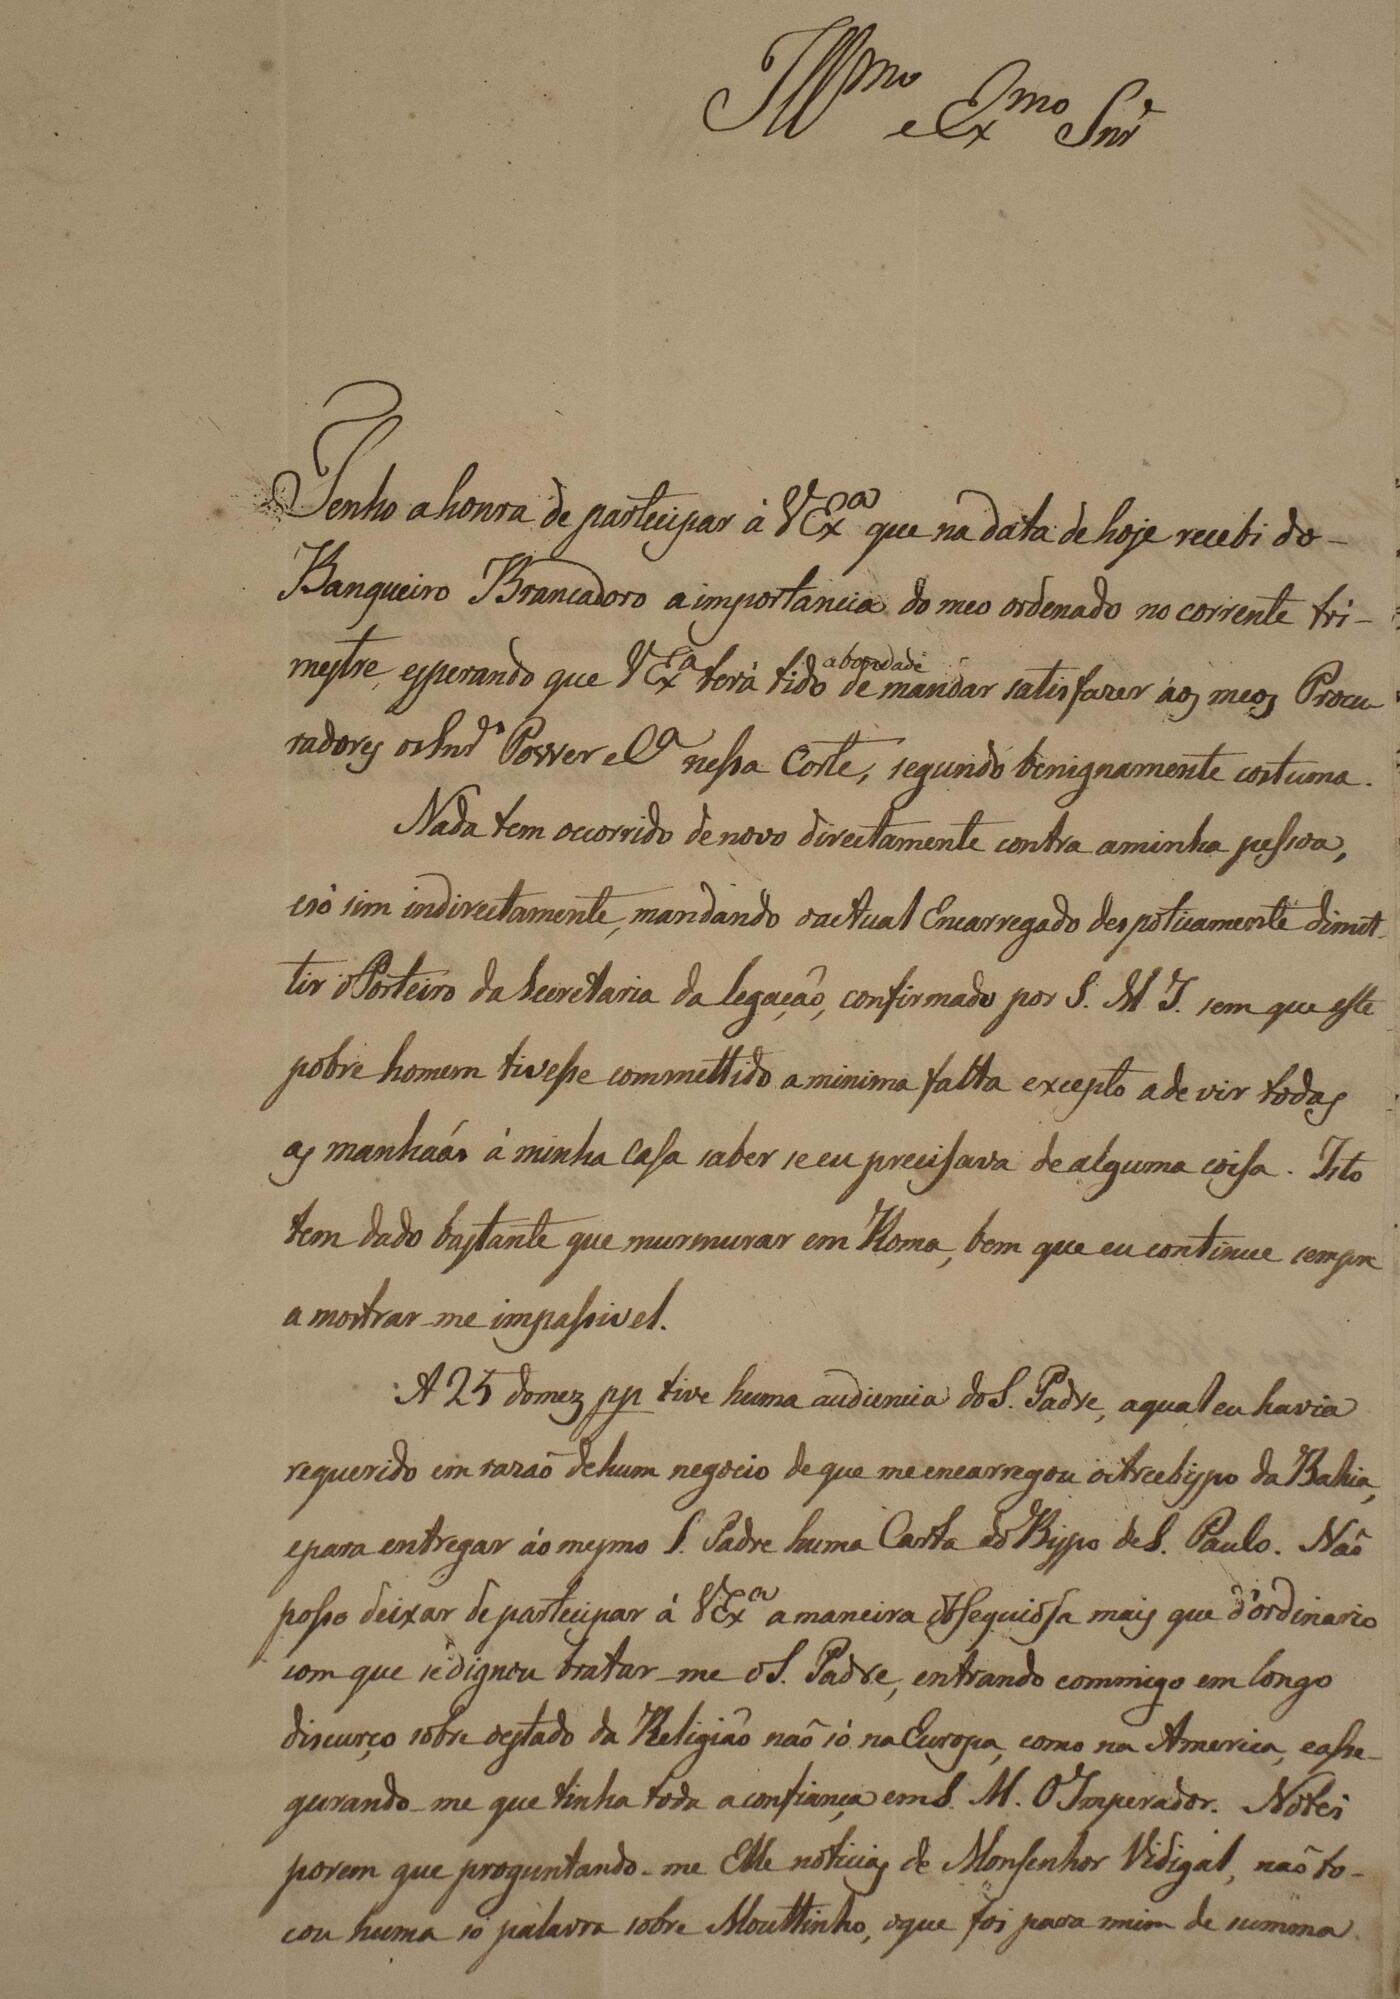 Illmo e Exmo Snr
Tenho a honra de partecipar á VExa que na data de hoje recebi do
Banqueiro Brancadoro a importancia do meo ordenado no corrente tri-
mestre, esperando que VExa terá tido a bondade de mandar satisfazer áos meos Procu-
radores os Snrs Power e Ca nessa Corte, segundo benignamente costuma.
Nada tem occorrido de novo directamente contra a minha pessoa,
e só sim indirectamente, mandando o actual Encarregado despoticamente dimit-
tir o Porteiro da Secretaria da legação, confirmado por S. M. I. sem que este
pobre homem tivesse commettido a minima falta excepto a de vir todas
as manhaás á minha Casa saber se eu precisava de alguma coisa. Isto
tem dado bastante que murmurar em Roma, bem que eu continue sempre
a mostrar-me impassivel.
A 25 do mez pp tive huma audiencia do S. Padre, a qual eu havia
requerido em razaõ de hum negocio de que me encarregou o Arcebispo da Bahia,
e para entregar áo mesmo S. Padre huma Carta do Bispo de S. Paulo. Naõ
posso deixar de partecipar á VExa a maneira obsequiosa mais que d'ordinario
com que se dignou tratar-me o S. Padre, entrando commigo em longo
discurço sobre o estado da Religiaõ naõ só na Europa, como na America, e asse-
gurando-me que tinha toda a confiança em S. M. O Imperador. Notei
porem que proguntando-me Elle noticias de Monsenhor Vidigal, naõ to-
cou huma só palavra sobre Mouttinho, o que foi para mim de summa